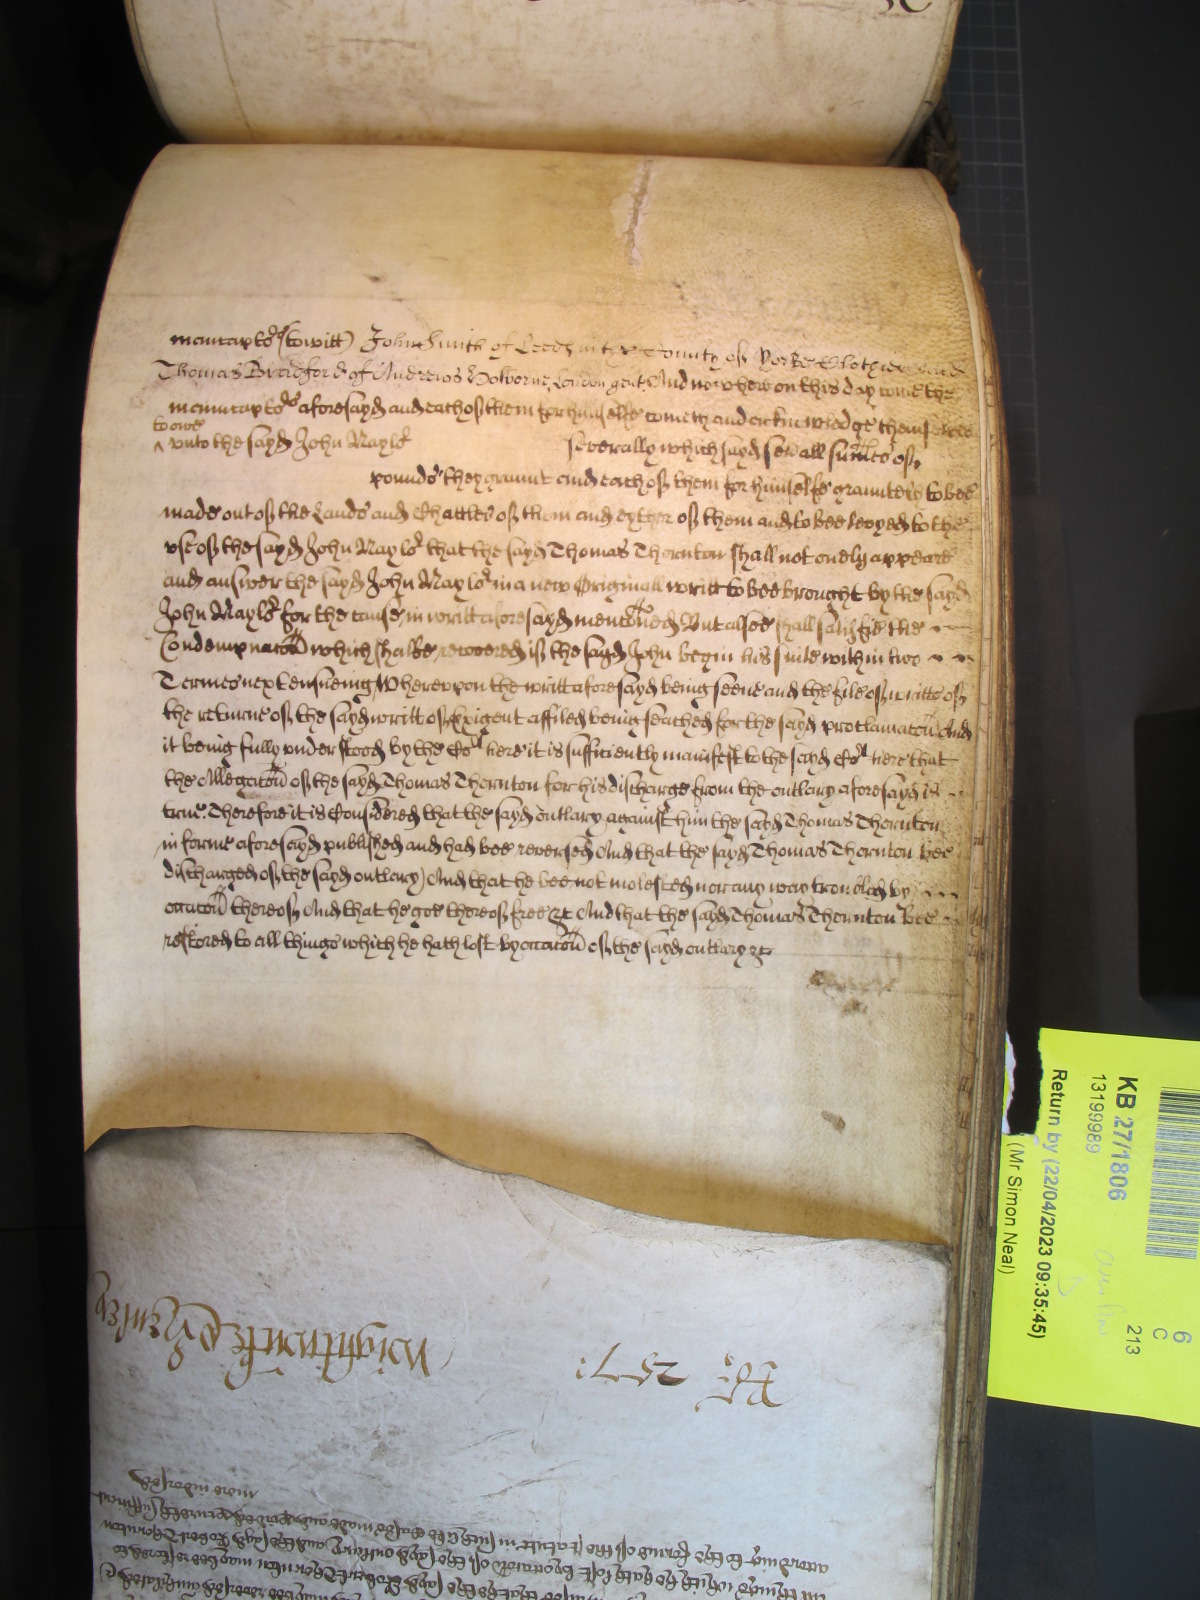 manucaptors (towitt) John Smith of Leeds in the County of Yorke Clothier and
Thomas Bradford of Andrewes Holborne London gent And now here on this day come the
manucaptors aforesayd and each of them for himselfe cometh and acknowledge themselves
to owe
^ unto the sayd John Naylor severally which sayd sevall summes of
pounds they graunt and each of them for himselfe graunteth to bee
made out of the Lands and Chattles of them and eyther of them and to bee levyed to the
use of the sayd John Naylor that the sayd Thomas Thornton shall not onely appeare
and answer the sayd John Naylor in a new Originall writt to bee brought by the sayd
John Naylor for the cause in writt aforesayd mentoned But alsoe shall satisfie the
Condempnacon which shalbe recovered if the sayd John begin his suite within two
Termes next ensueing Whereupon the writt aforesayd being seene and the file of writts of
the returne of the sayd writt of Exigent affiled being seached for the sayd proclamacon And
it being fully understood by the Cort here it is sufficiently manifest to the sayd Cort here that
the Allegacon of the sayd Thomas Thornton for his discharge from the outlary aforesayd is
true. Therefore it is Considered that the sayd outlary against him the sayd Thomas Thornton
in forme aforesayd published and had bee reversed And that the sayd Thomas Thornton bee
discharged of the sayd outlary And that he bee not molested nor any way troubled by
occacon thereof And that he goe thereof free &c And that the sayd Thomas Thornton bee
restored to all things which he hath lost by occacon of the sayd outlary &c
KB 27/1806
13199989
Return by (22/04/2023 09:35:45)
(Mr Simon Neal)
6
C
213
Ro: 257:
more indorsed